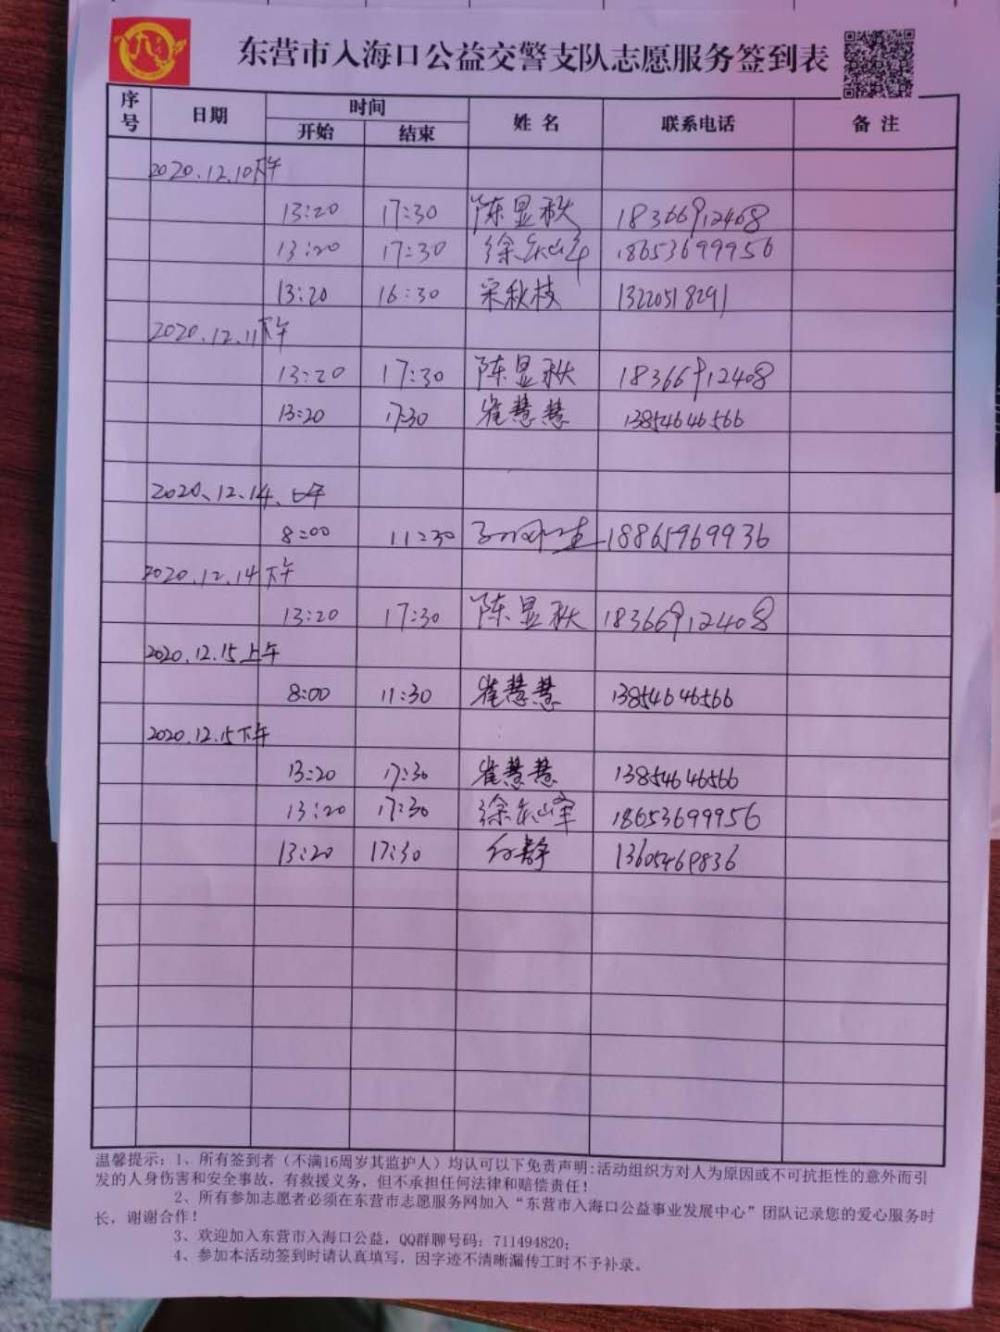 东营市入海口公益交警支队志愿服务签到表
序号 日期 时间 姓 名 联系电话 备 注
开始 结束
2020.12.10下午
13:20 17:30 陈显秋 18366912408
13:20 17:30 徐乐山峰 18653699956
13:20 16:30 宋秋枝 13220518291
2020.12.11下午
13:20 17:30 陈显秋 18366912408
13:20 17:30 崔慧慧 13854646566
2020、12、14、上午
8:00 11:30 18865969936
2020.12.14下午
13:20 17:30 陈显秋 18366912408
2020.12.15上午
8:00 11:30 崔慧慧 13854646566
2020.12.15下午
13:20 17:30 崔慧慧 13854646566
13:20 17:30 18653699956
13:20 17:30 13605469836
温馨提示：1、所有签到者（不满16周岁其监护人）均认可以下免责声明:活动组织方对人为原因或不可抗拒性的意外而引
发的人身伤害和安全事故，有救援义务，但不承担任何法律和赔偿责任！
2、所有参加志愿者必须在东营市志愿服务网加入“东营市入海口公益事业发展中心”团队记录您的爱心服务时
长，谢谢合作！
3、欢迎加入东营市入海口公益，QQ群聊号码：711494820；
4、参加本活动签到时请认真填写，因字迹不清晰漏传工时不予补录。